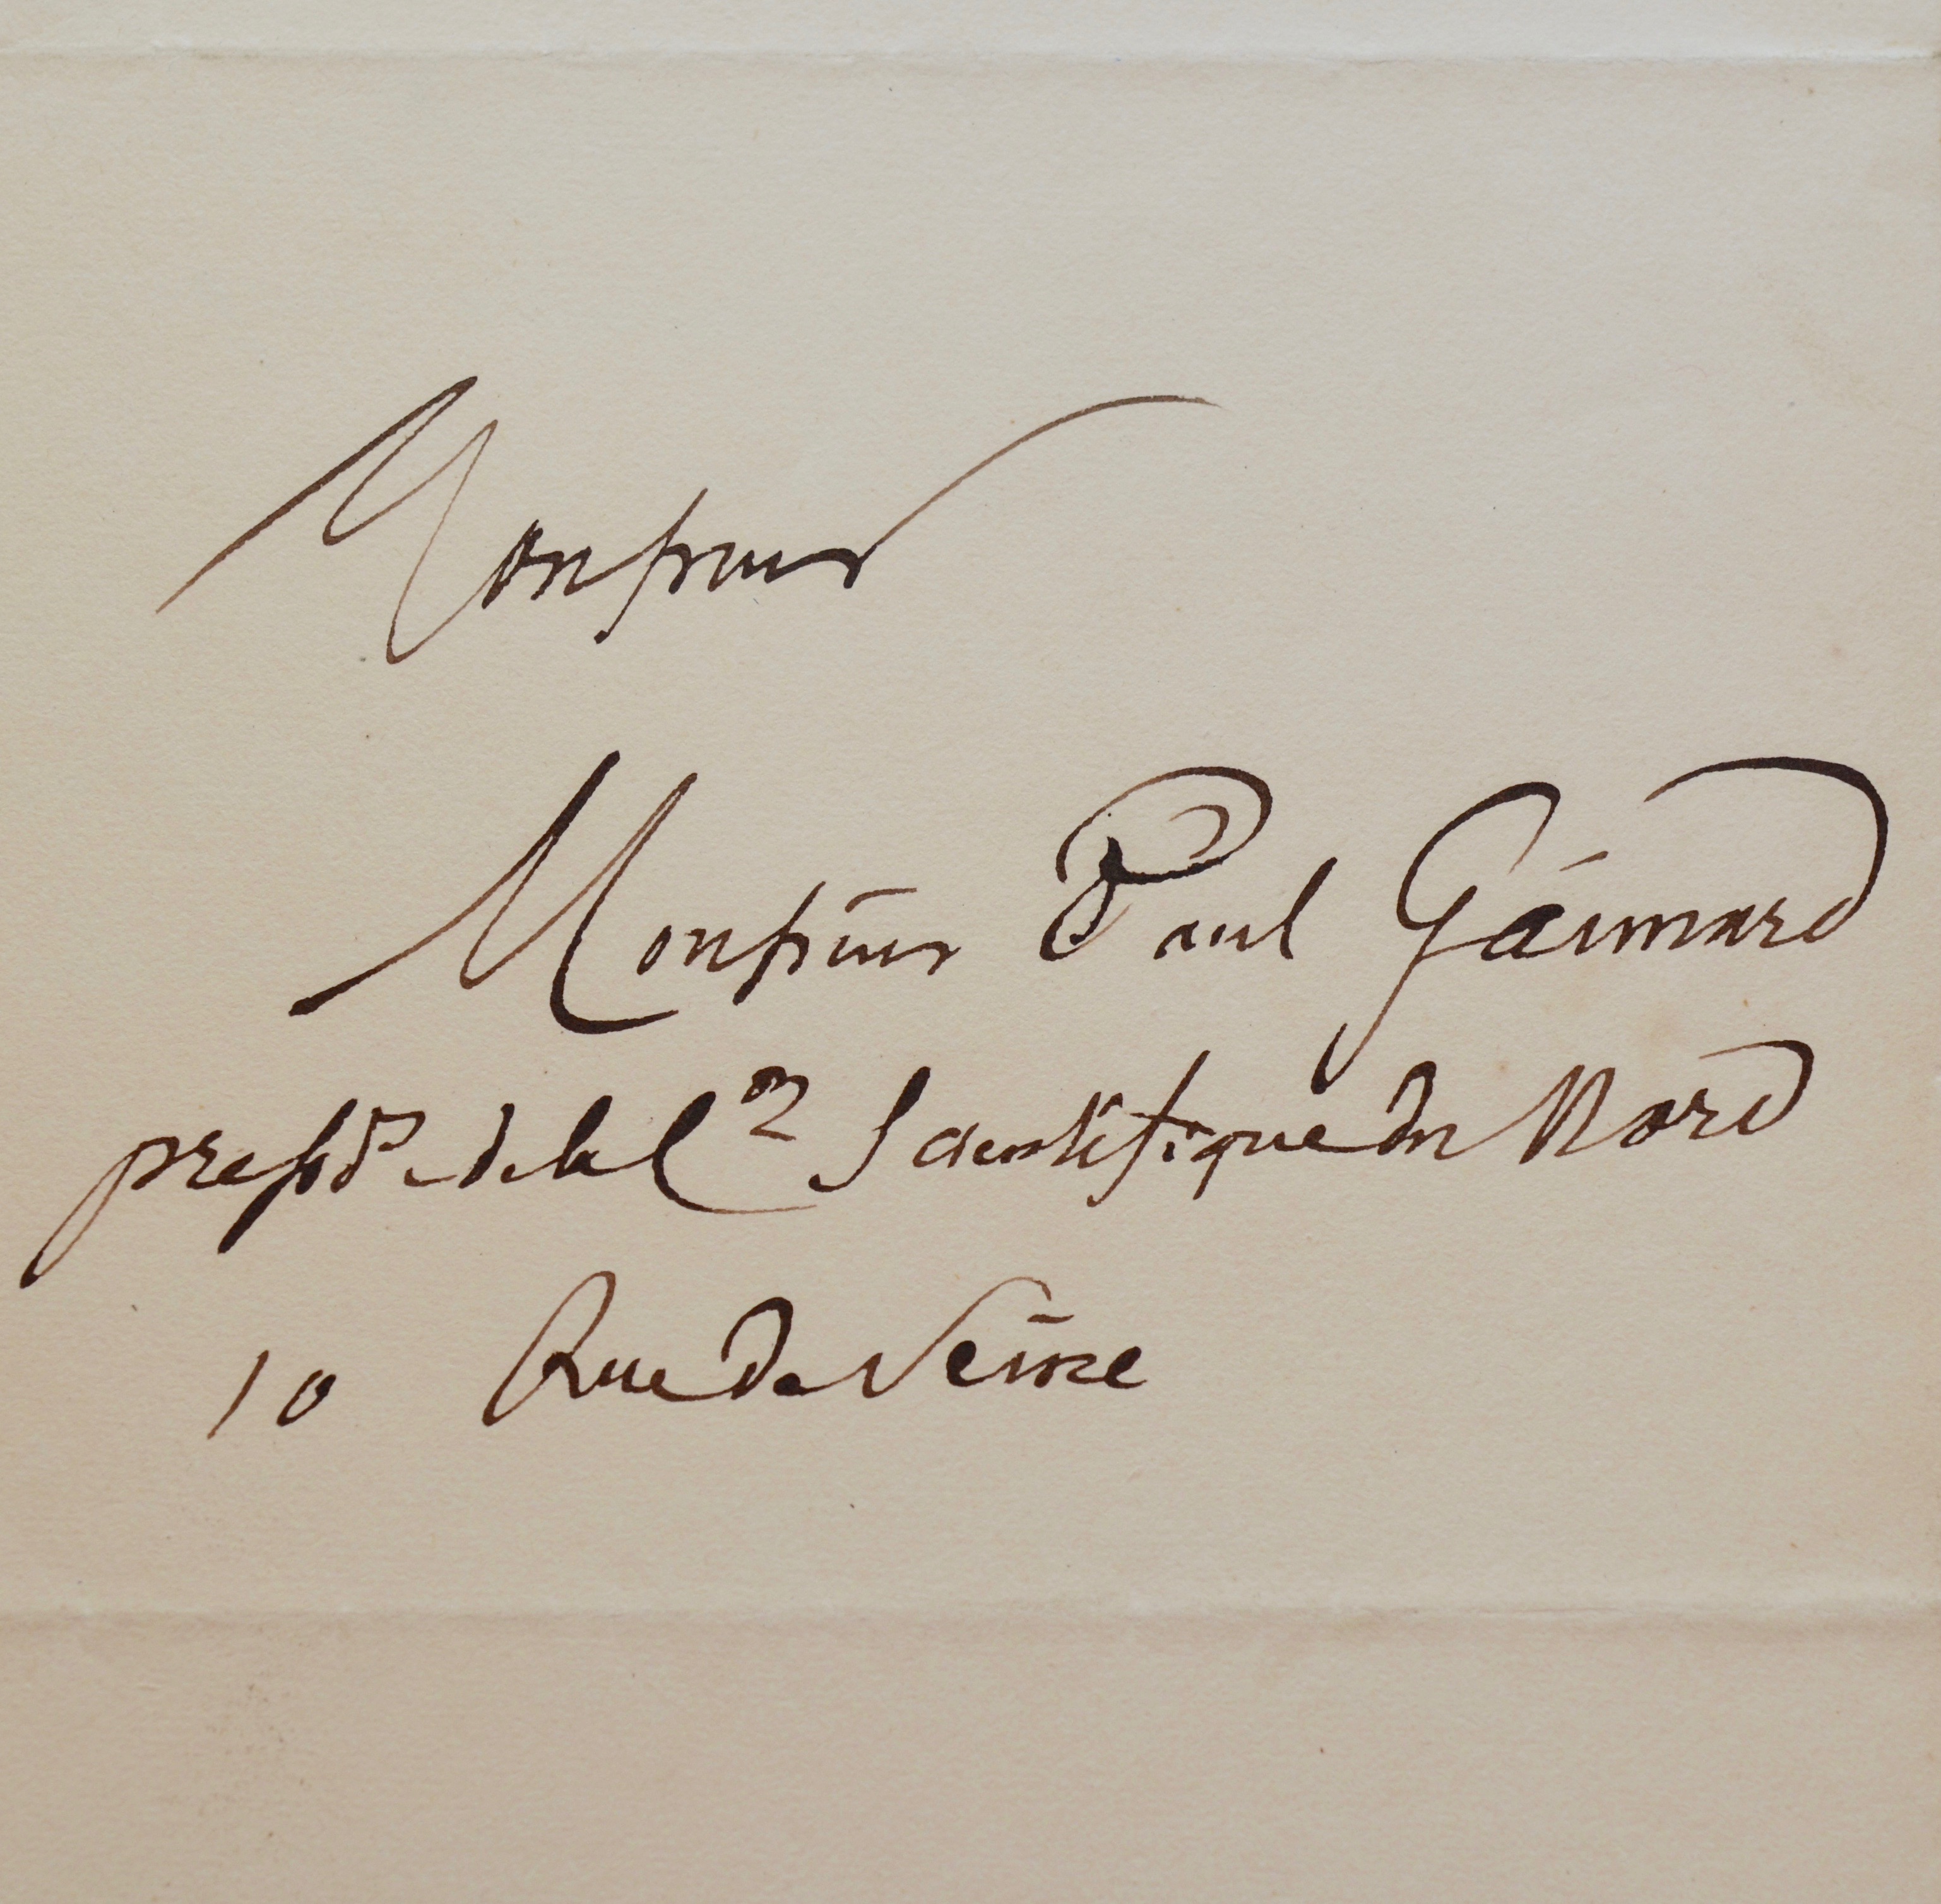 Monsieur
Monsieur Paul Gaimard
presidt de la Cn Scientifique du Nord
10 Rue de Seine